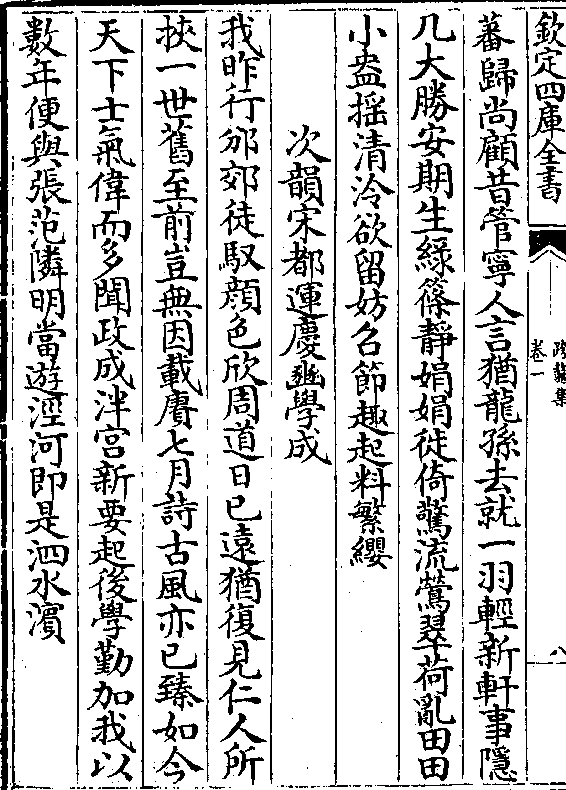 欽定四庫全書
跨鼇集
卷一
八
蕃歸尚顧昔管寧人言猶龍孫去就一羽輕新軒事隱
几大勝安期生綠篠静娟娟徙倚驚流鶯翠荷亂田田
小盎揺清泠欲留妨名節趣起料繁纓
次韻宋都運慶豳學成
我昨行邠郊徒馭顔色欣周道日已逺猶復見仁人所
挾一世舊至前豈無因載賡七月詩古風亦已臻如今
天下士氣偉而多聞政成泮宫新要起後學勤加我以
數年便與張范隣明當遊涇河即是泗水濵